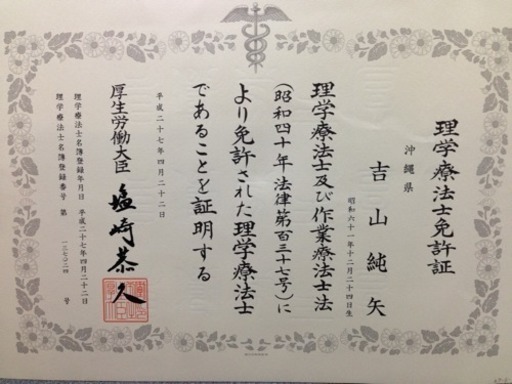 理学療法士免許証
沖縄県
吉山純矢
昭和六十一年十二月二十四日生
理学療法士及び作業療法士法
(昭和四十年法律第百三十七号)に
より免許された理学療法士
であることを証明する
平成二十七年四月二十二日
厚生労働大臣 塩崎恭久
理学療法士名簿登録年月日 平成二十七年四月二十二日
理学療法士名簿登録番号 第 一三七〇二四 号